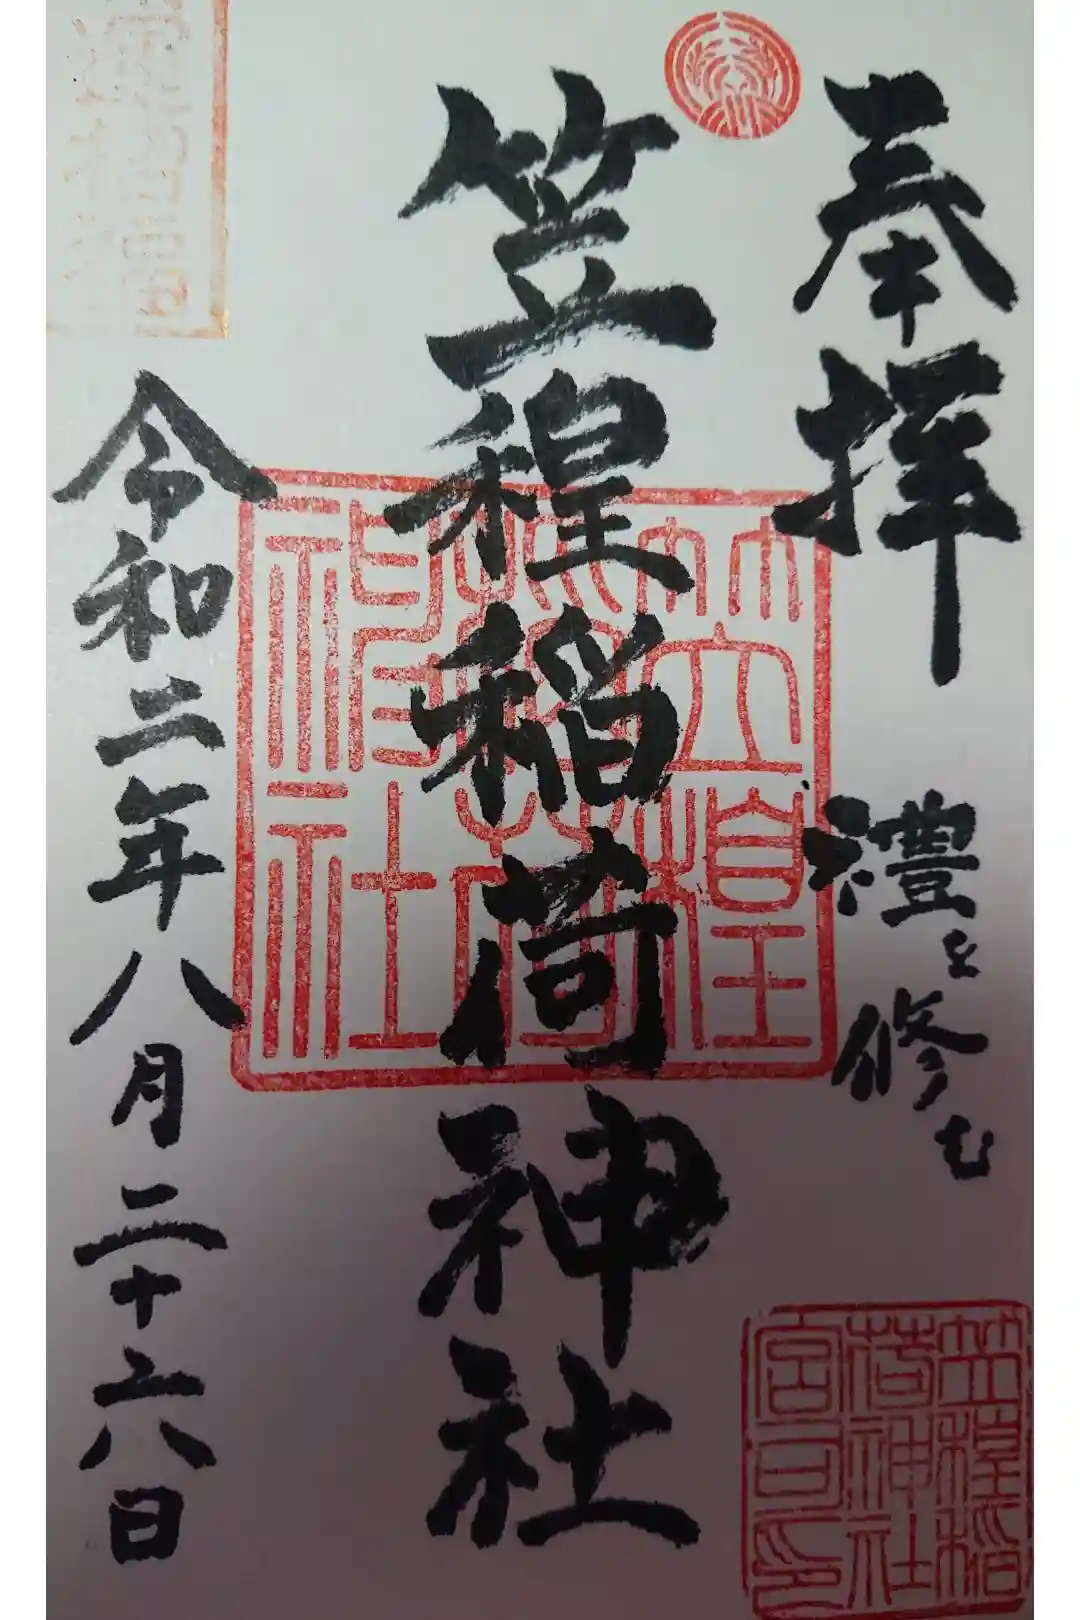 奉拝
禮を修む
笠䅣稲荷神社
笠䅣
稲荷
神社
令和二年八月二十六日
笠䅣稲
荷神社
宮司印